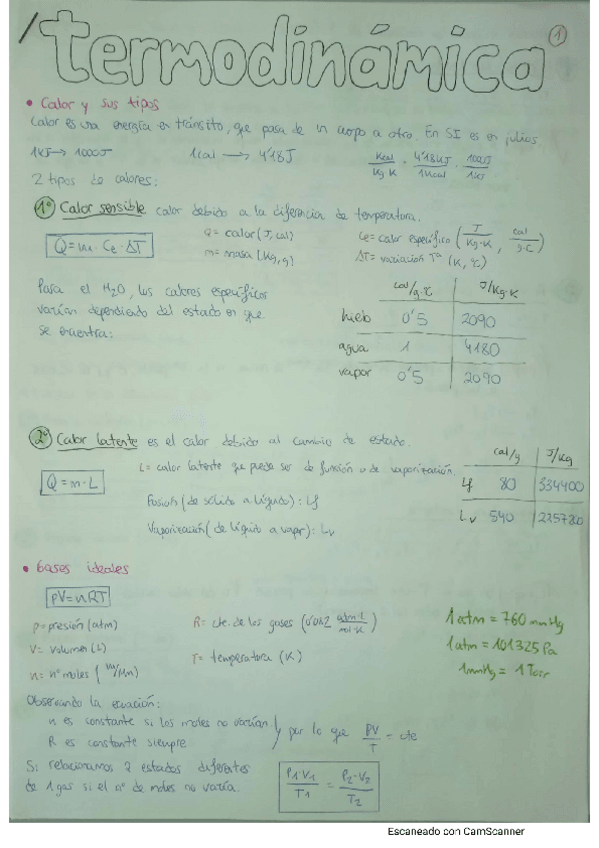 termodinámica
1
• Calor y sus tipos
Calor es una energía en tránsito, que pasa de un cuerpo a otro. En SI es en julios
1KJ → 1000J 1cal → 4'18J Kcal/Kg K · 4'18KJ/1Kcal · 1000J/1KJ
2 tipos de calores:
1º Calor sensible calor debido a la diferencia de temperatura.
Q = m · Ce · ΔT
Q = calor (J, cal) Ce = calor específico (J/Kg·K, cal/g·ºC)
m = masa (Kg, g) ΔT = variación Tª (K, ºC)
Para el H2O, los calores específicos
varían dependiendo del estado en que
se encuentra:
cal/g·ºC J/Kg·K
hielo 0'5 2090
agua 1 4180
vapor 0'5 2090
2º Calor latente es el calor debido al cambio de estado.
Q = m · L
L = calor latente que puede ser de fusión o de vaporización.
Fusión (de sólido a líquido): Lf
Vaporización (de líquido a vapor): Lv
cal/g J/Kg
Lf 80 334400
Lv 540 2257200
• Gases ideales
PV = nRT
p = presión (atm) R = cte. de los gases (0'082 atm·L/mol·K)
V = volumen (L)
T = temperatura (K)
n = nº moles (m/Mm)
1 atm = 760 mmHg
1 atm = 101325 Pa
1mmHg = 1 Torr
Observando la ecuación:
n es constante si los moles no varían
R es constante siempre
y por lo que PV/T = cte
Si relacionamos 2 estados diferentes
de 1 gas si el nº de moles no varía.
P1·V1/T1 = P2·V2/T2
Escaneado con CamScanner